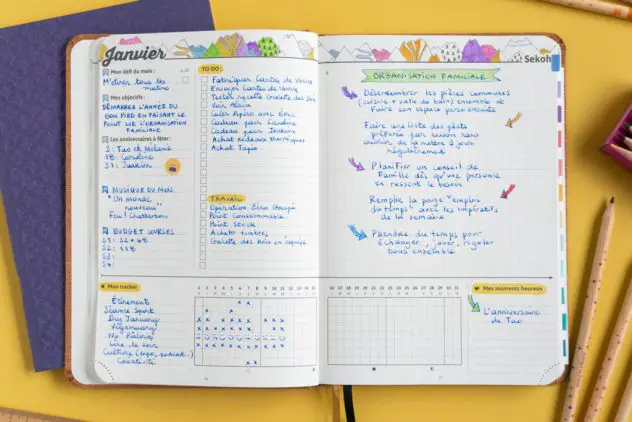 Janvier
Sekoh
Mon défi du mois :
M'étirer tous les
matins
Mes objectifs :
DÉMARRER L'ANNÉE DU
BON PIED EN FAISANT LE
POINT SUR L'ORGANISATION
FAMILIALE
Les anniversaires à fêter :
3 : Tao et Mélanie
18 : Caroline
31 : Joakim
MUSIQUE DU MOIS
"Un monde
nouveau"
Feu! Chatterton
BUDGET COURSES
S1 :
S2 :
S3 :
S4 :
TO DO :
Fabriquer Cartes de Voeux
Envoyer Cartes de Voeux
Tester recette Galette des Rois
Voir Alain
Caler Apéro avec Eric
Cadeau pour Caroline
Cadeau pour Joakim
Achat Rideaux thermiques
Achat Tapis
TRAVAIL
Opération Zéro Gaspi
Point Consommable
Point Stock
Achat timbres
Galette des Rois en équipe
ORGANISATION FAMILIALE
Désencombrer les pièces communes
(cuisine + salle de bain) ensemble et
Faire son espace perso ensuite
Faire une liste des plats
préférés par saison sans
oublier de la mettre à jour
régulièrement
Planifier un conseil de
Famille dès qu'une personne
en ressent le besoin
Remplir la page "emplois
du temps" avec les impératifs
de la semaine
Prendre du temps pour
échanger, jouer, rigoler
tous ensemble
Mon tracker
1 2 3 4 5 6 7 8 9 10 11 12 13 14 15
Étirements
Séance Sport
Dry January
Veganuary
No Râlerie
Lire le soir
Culture (expo, podcast..)
Créativité
16 17 18 19 20 21 22 23 24 25 26 27 28 29 30 31
Mes moments heureux
L'anniversaire
de Tao